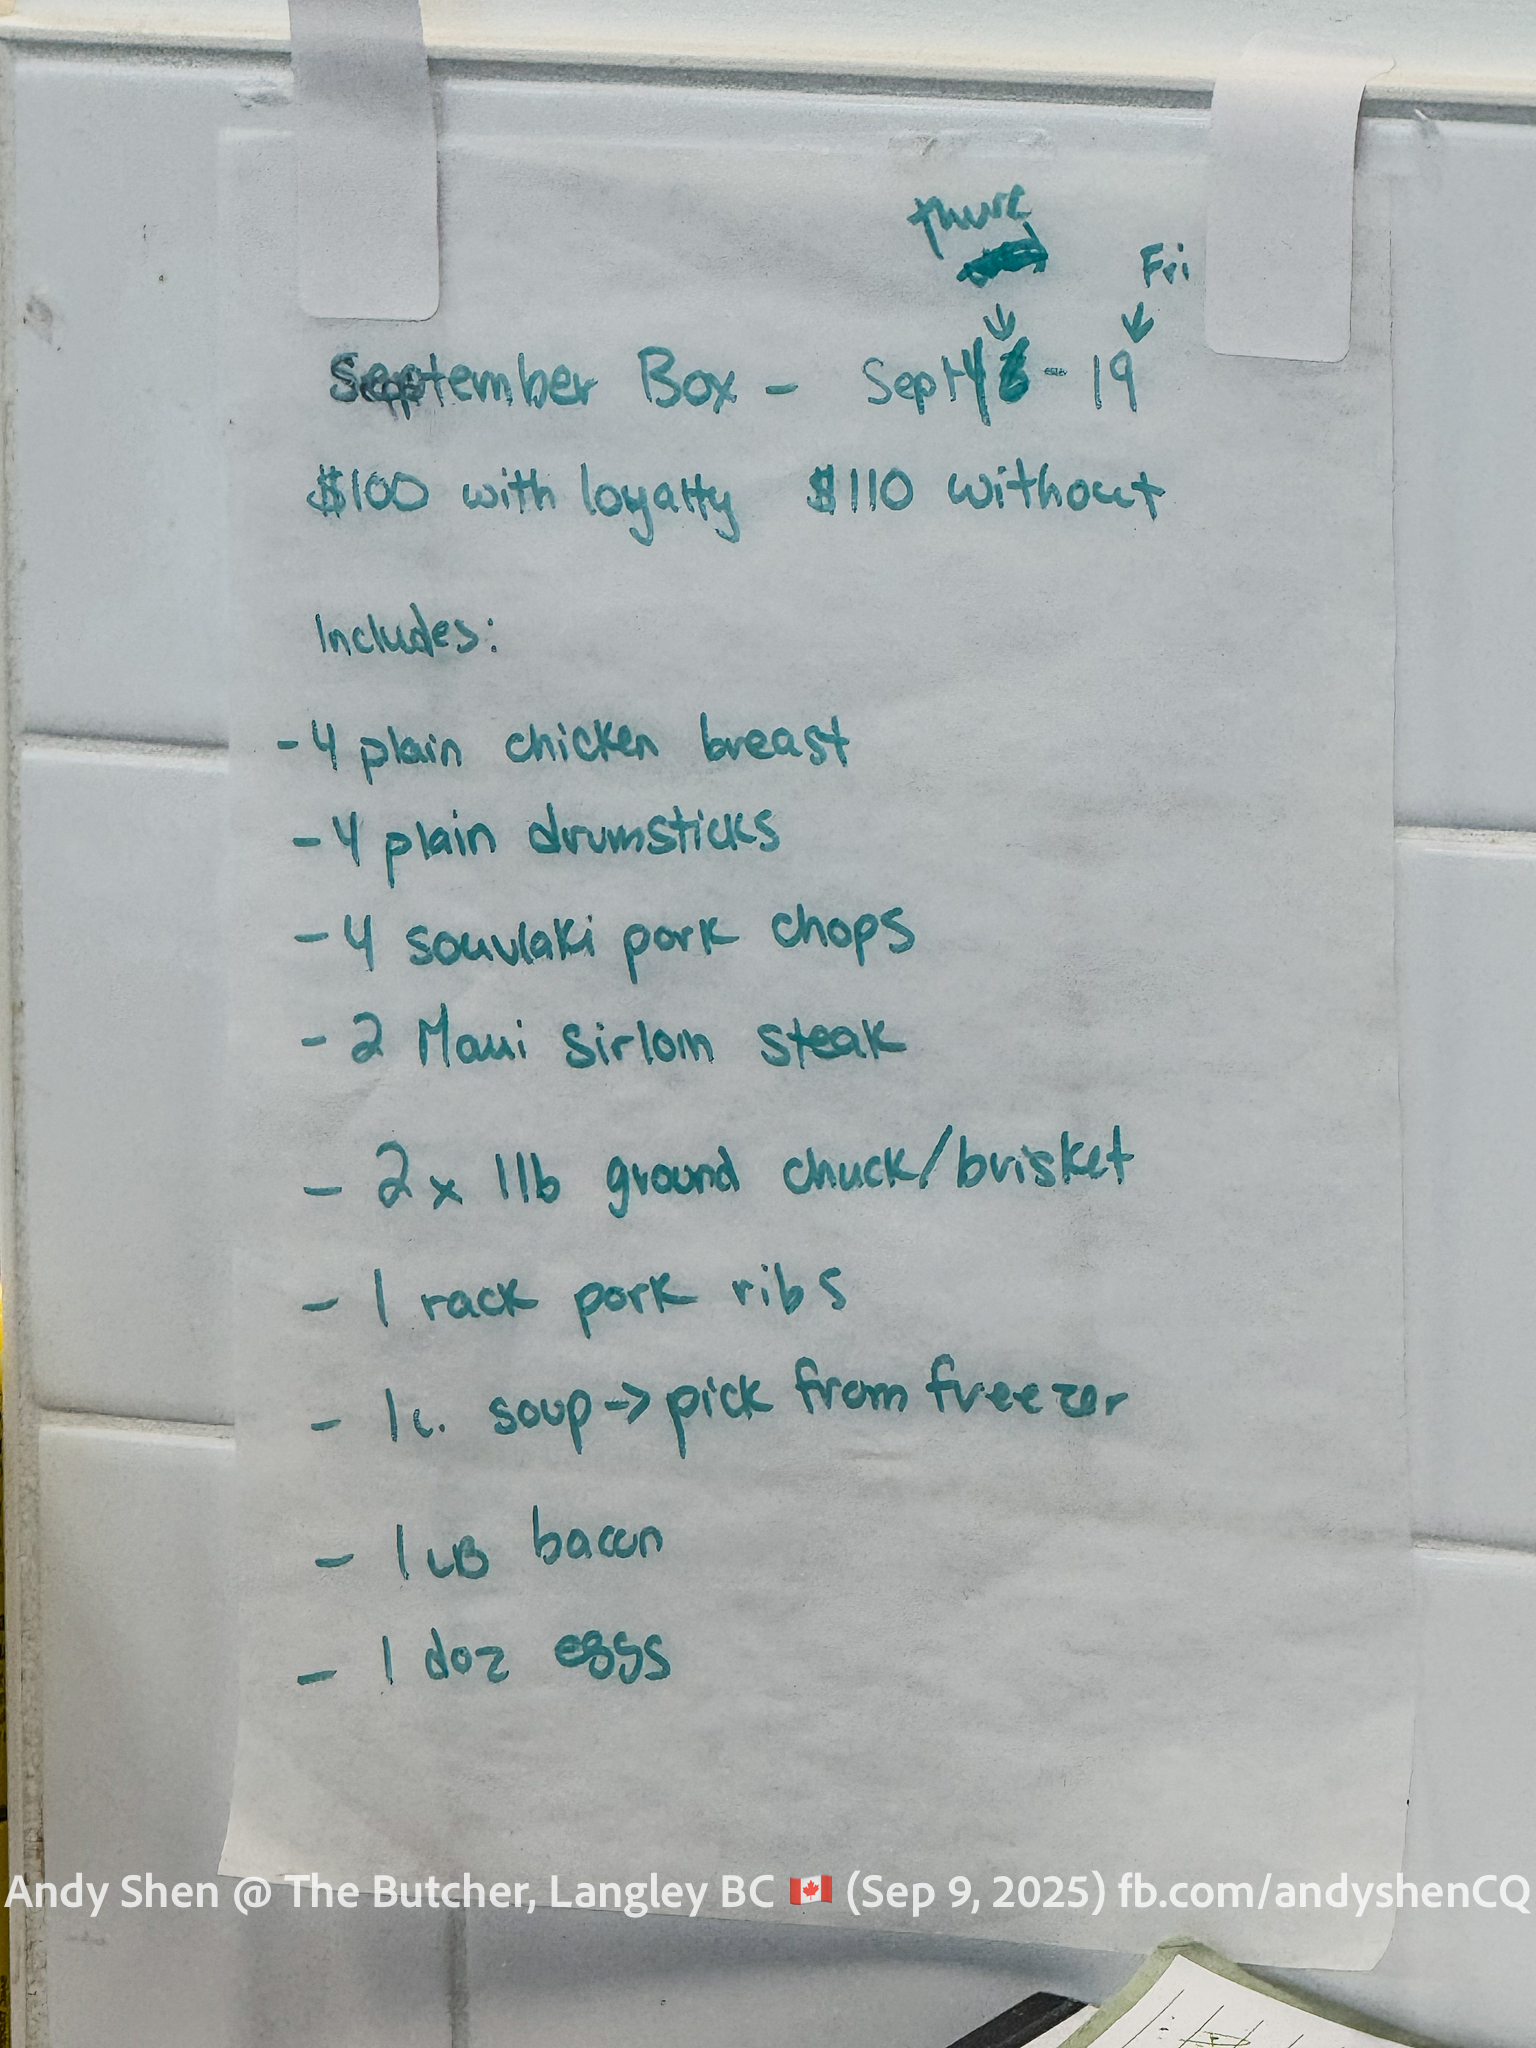 thurs
Fri
September Box - Sept - 19
$100 with loyalty $110 without
Includes:
- 4 plain chicken breast
- 4 plain drumsticks
- 4 souvlaki pork chops
- 2 Maui sirloin steak
- 2 x 1lb ground chuck/brisket
- 1 rack pork ribs
- 1 soup -> pick from freezer
- 1 LB bacon
- 1 doz eggs
Andy Shen @ The Butcher, Langley BC 🇨🇦 (Sep 9, 2025) fb.com/andyshenCQ